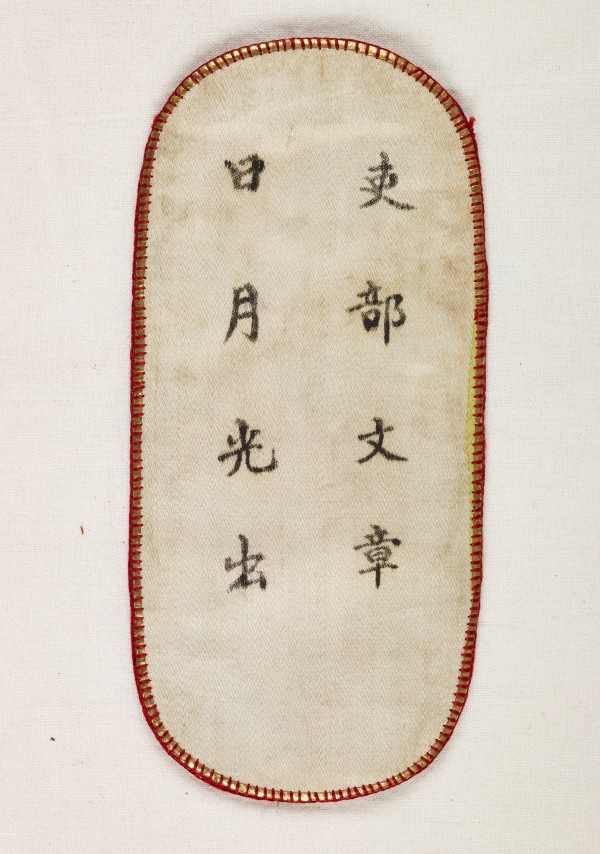 吏部文章
日月光出